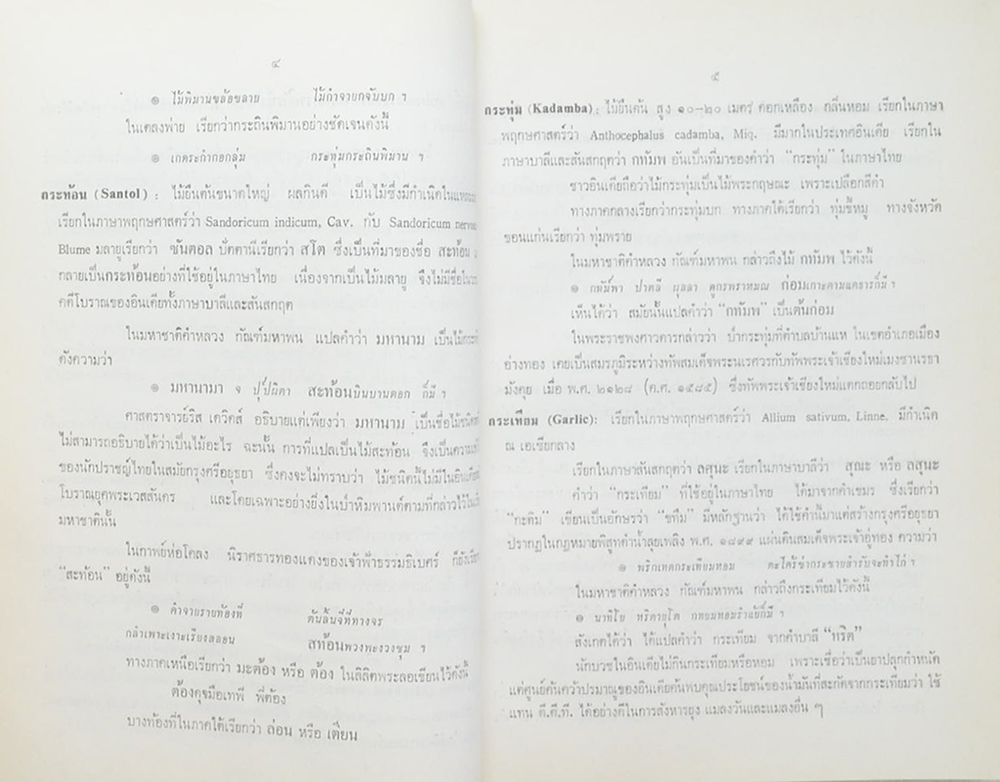 ๔
๏ ไม้พิมานขล้อขลาย ไม้กำจายกจับบก ฯ
ในเพลงพ่าย เรียกว่ากระถินพิมานอย่างชัดเจนดังนี้
๏ เกดระกำกอกลุ่ม กระทุ่มกระถินพิมาน ฯ
กระท้อน (Santol) : ไม้ยืนต้นขนาดใหญ่ ผลกินดี เป็นไม้ซึ่งมีกำเนิดใน
เรียกในภาษาพฤกษศาสตร์ว่า Sandoricum indicum, Cav. กับ Sandoricum
Blume มลายูเรียกว่า ซันตอล ปัตตานีเรียกว่า สโต ซึ่งเป็นที่มาของชื่อ สะท้อน
กลายเป็นกระท้อนอย่างที่ใช้อยู่ในภาษาไทย เนื่องจากเป็นไม้มลายู จึงไม่มีชื่อใน
คดีโบราณของอินเดียทั้งภาษาบาลีและสันสกฤต
ในมหาชาติคำหลวง กัณฑ์มหาพน แปลคำว่า มหานาม เป็นไม้
ดังความว่า
๏ มหานามา จ ปุปฺผิตา สะท้อนบินบานดอก ก็มี ฯ
ศาสตราจารย์ริส เดวิดส์ อธิบายแต่เพียงว่า มหานาม เป็นชื่อไม้
ไม่สามารถอธิบายได้ว่าเป็นไม้อะไร ฉะนั้น การที่แปลเป็นไม้สะท้อน จึงเป็นความ
ของนักปราชญ์ไทยในสมัยกรุงศรีอยุธยา ซึ่งคงจะไม่ทราบว่า ไม้ชนิดนี้ไม่มีใน
โบราณยุคพระเวสสันดร และโดยเฉพาะอย่างยิ่งในป่าหิมพานต์ตามที่กล่าวไว้ใน
มหาชาตินั้น
ในกาพย์ห่อโคลง นิราศธารทองแดงของเจ้าฟ้าธรรมธิเบศร์ ก็ยัง
"สะท้อน" อยู่ดังนี้
๏ คำจายรายท้องที่ ดันลั้นจี่ที่ทางจร
กลำเพาะเงาะเรียงสลอน สท้อนพวงพะงวงชุม ฯ
ทางภาคเหนือเรียกว่า มะต้อง หรือ ต้อง ในลิลิตพระลอเขียนไว้ดังนี้
ต้องดุจมือเทพี พี่ต้อง
บางท้องที่ในภาคใต้เรียกว่า ล่อน หรือ เตียน
๕
กระทุ่ม (Kadamba) : ไม้ยืนต้น สูง ๑๐–๒๐ เมตร ดอกเหลือง กลิ่นหอม เรียกในภาษา
พฤกษศาสตร์ว่า Anthocephalus cadamba, Miq. มีมากในประเทศอินเดีย เรียกใน
ภาษาบาลีและสันสกฤตว่า กทัมพ อันเป็นที่มาของคำว่า "กระทุ่ม" ในภาษาไทย
ชาวอินเดียถือว่าไม้กระทุ่มเป็นไม้พระกฤษณะ เพราะเปลือกสีดำ
ทางภาคกลางเรียกว่ากระทุ่มบก ทางภาคใต้เรียกว่า ทุ่มขี้หมู ทางจังหวัด
ขอนแก่นเรียกว่า ทุ่มพราย
ในมหาชาติคำหลวง กัณฑ์มหาพน กล่าวถึงไม้ กทัมพ ไว้ดังนี้
๏ กทมฺพา ปาตลี ผุลลา ดูกรพราหมณ ก่อมเกาะตามแคธารก็มี ฯ
เห็นได้ว่า สมัยนั้นแปลคำว่า "กทัมพ" เป็นต้นก่อม
ในพระราชพงศาวดารกล่าวว่า ป่ากระทุ่มที่ตำบลบ้านแห ในเขตอำเภอเมือง
อ่างทอง เคยเป็นสมรภูมิระหว่างทัพสมเด็จพระนเรศวรกับทัพพระเจ้าเชียงใหม่เมงซานรธา
มังคุย เมื่อ พ.ศ. ๒๑๒๘ (ค.ศ. ๑๕๘๕) ซึ่งทัพพระเจ้าเชียงใหม่แตกถอยกลับไป
กระเทียม (Garlic): เรียกในภาษาพฤกษศาสตร์ว่า Allium sativum, Linne. มีกำเนิด
ณ เอเชียกลาง
เรียกในภาษาสันสกฤตว่า ลศุนะ เรียกในภาษาบาลีว่า สุณะ หรือ ลสุนะ
คำว่า "กระเทียม" ที่ใช้อยู่ในภาษาไทย ได้มาจากคำเขมร ซึ่งเรียกว่า
"กะติม" เขียนเป็นอักษรว่า "ขทึม" มีหลักฐานว่า ได้ใช้คำนี้มาแต่สร้างกรุงศรีอยุธยา
ปรากฏในกฎหมายพิสูทดำน้ำลุยเพลิง พ.ศ. ๑๘๙๙ แผ่นดินสมเด็จพระเจ้าอู่ทอง ความว่า
๏ พริกเทศกระเทียมหอม ตะไคร้ข่ากระชายสำรับจะทำไก่ ฯ
ในมหาชาติคำหลวง กัณฑ์มหาพน กล่าวถึงกระเทียมไว้ดังนี้
๏ นาทิโย หริตายุโต กทยมหอมรำแย้ก็มี ฯ
สังเกตได้ว่า ได้แปลคำว่า กระเทียม จากคำบาลี "หริต"
นักบวชในอินเดียไม่กินกระเทียมหรือหอม เพราะเชื่อว่าเป็นยาปลุกกำหนัด
แต่ศูนย์ค้นคว้าปรมาณูของอินเดียค้นพบคุณประโยชน์ของน้ำมันที่สะกัดจากกระเทียมว่า ใช้
แทน ดี.ดี.ที. ได้อย่างดีในการสังหารยุง แมลงวันและแมลงอื่น ๆ